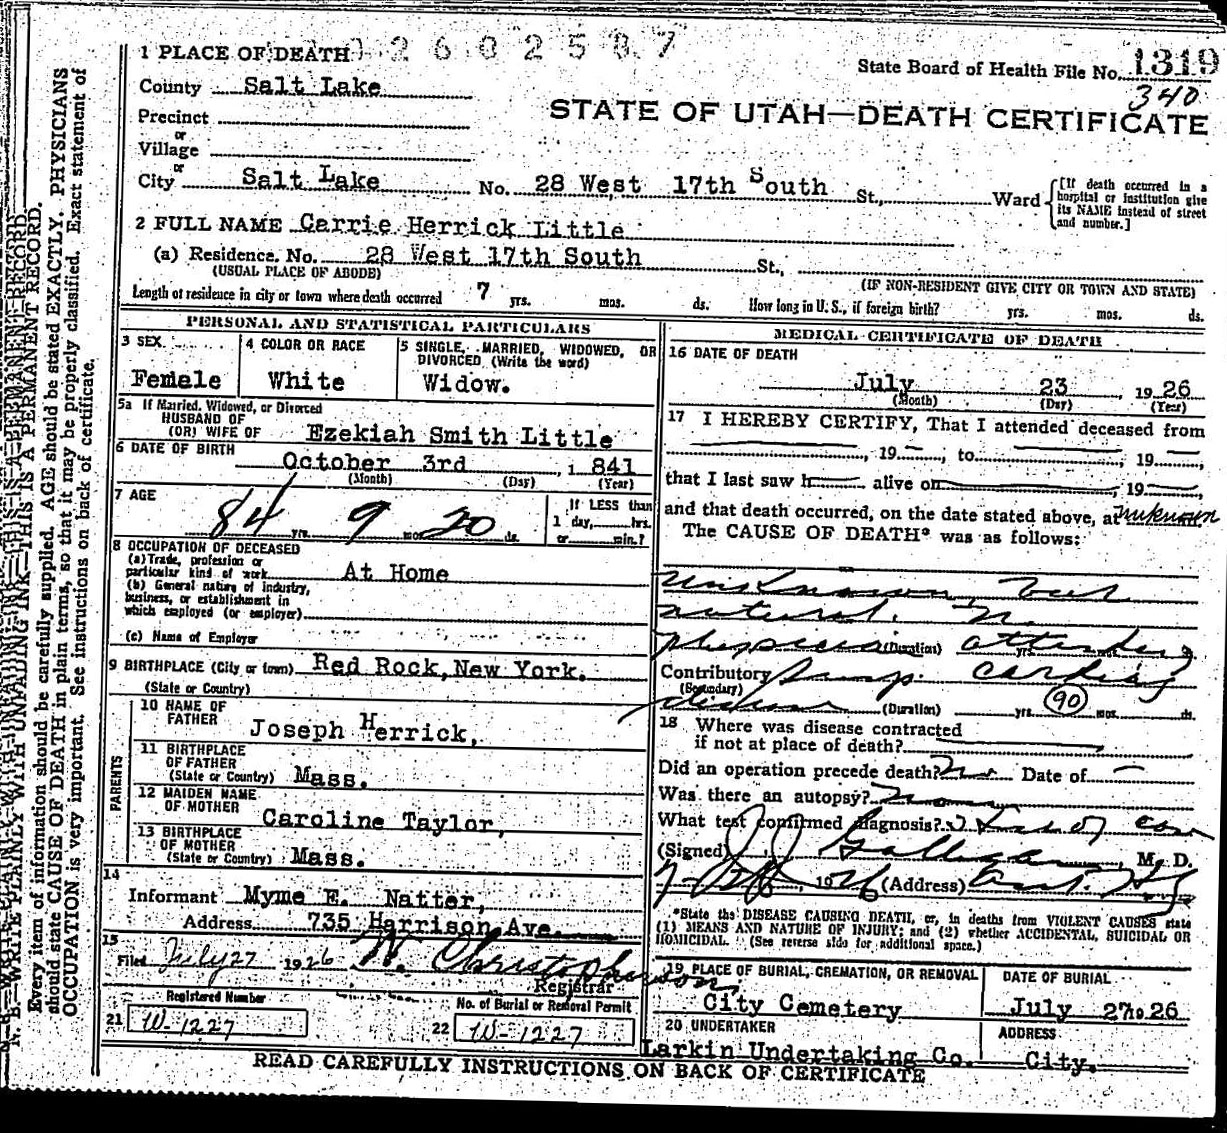 0 2 6 0 2 5 8 7
1 PLACE OF DEATH
State Board of Health File No. 1319
County Salt Lake
340
STATE OF UTAH—DEATH CERTIFICATE
Precinct
or
Village
or
City Salt Lake No. 28 West 17th South St., Ward
[If death occurred in a hospital or institution give its NAME instead of street and number.]
2 FULL NAME Carrie Herrick Little
(a) Residence. No. 28 West 17th South St.,
(USUAL PLACE OF ABODE) (IF NON-RESIDENT GIVE CITY OR TOWN AND STATE)
Length of residence in city or town where death occurred 7 yrs. mos. ds. How long in U. S., if foreign birth? yrs. mos. ds.
PERSONAL AND STATISTICAL PARTICULARS
3 SEX
Female
4 COLOR OR RACE
White
5 SINGLE, MARRIED, WIDOWED, OR DIVORCED (Write the word)
Widow.
5a If Married, Widowed, or Divorced
HUSBAND OF
(OR) WIFE OF Ezekiah Smith Little
6 DATE OF BIRTH October 3rd, 1841
(Month) (Day) (Year)
7 AGE
84 yrs. 9 mos. 20 ds.
If LESS than
1 day, hrs.
or min.?
8 OCCUPATION OF DECEASED
(a) Trade, profession or
particular kind of work At Home
(b) General nature of industry,
business, or establishment in
which employed (or employer)
(c) Name of Employer
9 BIRTHPLACE (City or town) Red Rock, New York.
(State or Country)
PARENTS
10 NAME OF
FATHER
Joseph Herrick,
11 BIRTHPLACE
OF FATHER
(State or Country) Mass.
12 MAIDEN NAME
OF MOTHER
Caroline Taylor,
13 BIRTHPLACE
OF MOTHER
(State or Country) Mass.
14
Informant Myme E. Natter,
Address 735 Harrison Ave.
15
Filed July 27 1926 W. Christopherson
Registrar
Registered Number
21 W-1227
No. of Burial or Removal Permit
22 W-1227
MEDICAL CERTIFICATE OF DEATH
16 DATE OF DEATH
July 23, 1926
(Month) (Day) (Year)
17 I HEREBY CERTIFY, That I attended deceased from
, 19 , to , 19 ,
that I last saw h alive on , 19
and that death occurred, on the date stated above, at unknown
The CAUSE OF DEATH* was as follows:
unknown, but
natural. N.
physician attending
(Duration) yrs. mos.
Contributory cardiac
(Secondary)
disease (Duration) yrs. 90 mos. ds.
18 Where was disease contracted
if not at place of death?
Did an operation precede death? No Date of —
Was there an autopsy? None
What test confirmed diagnosis?
(Signed) , M. D.
, 1926 (Address)
*State the DISEASE CAUSING DEATH, or, in deaths from VIOLENT CAUSES state
(1) MEANS AND NATURE OF INJURY; and (2) whether ACCIDENTAL, SUICIDAL OR
HOMICIDAL. (See reverse side for additional space.)
19 PLACE OF BURIAL, CREMATION, OR REMOVAL
City Cemetery
DATE OF BURIAL
July 27 1926
20 UNDERTAKER
Larkin Undertaking Co.
ADDRESS
City.
READ CAREFULLY INSTRUCTIONS ON BACK OF CERTIFICATE
N. B.—WRITE PLAINLY WITH UNFADING INK—THIS IS A PERMANENT RECORD.
Every item of information should be carefully supplied. AGE should be stated EXACTLY. PHYSICIANS
should state CAUSE OF DEATH in plain terms, so that it may be properly classified. Exact statement of
OCCUPATION is very important. See instructions on back of certificate.